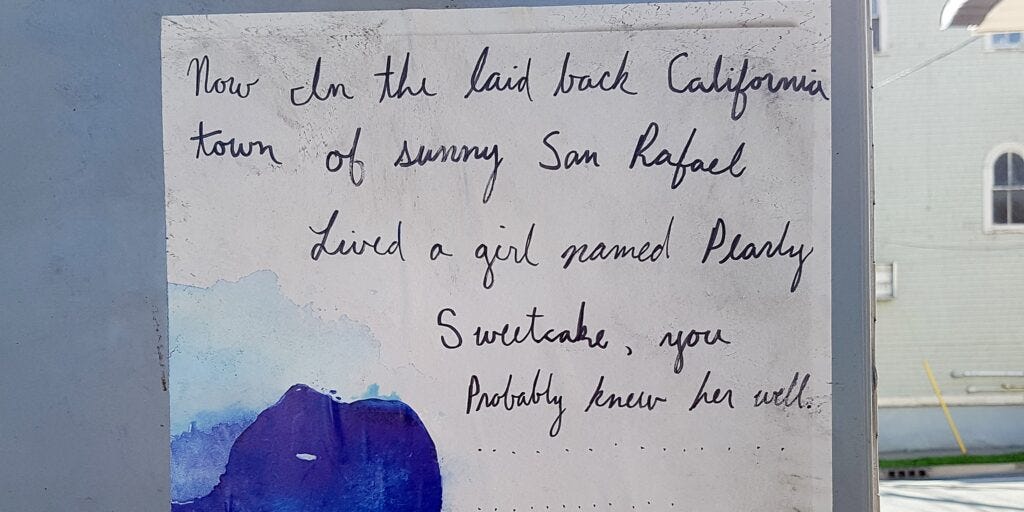 Now In the laid back California
town of sunny San Rafael
Lived a girl named Pearly
Sweetcake, you
Probably knew her well.